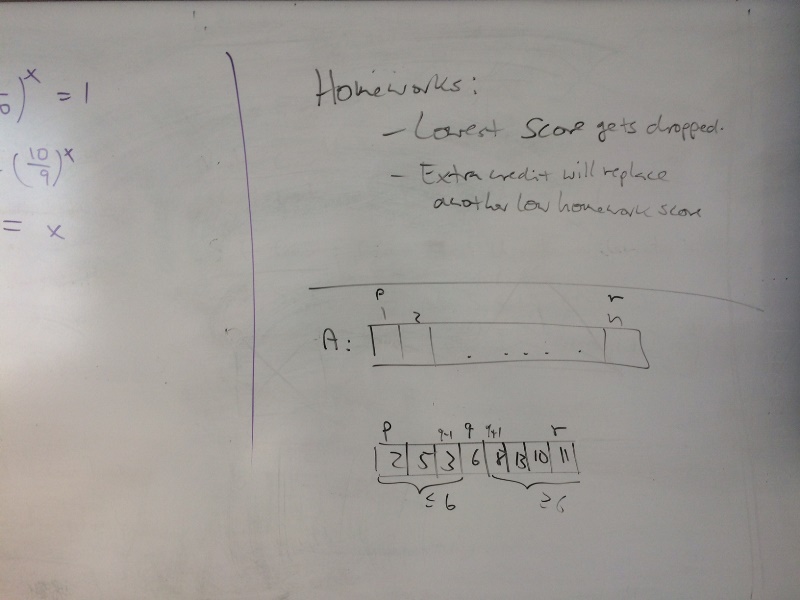 0)^x = 1
(10/9)^x
= x
Homeworks:
- Lowest Score gets dropped.
- Extra credit will replace
another low homework score
p r
1 2 n
A: . . . . . .
p q-1 q q+1 r
2 5 3 6 8 13 10 11
≤6 ≥6